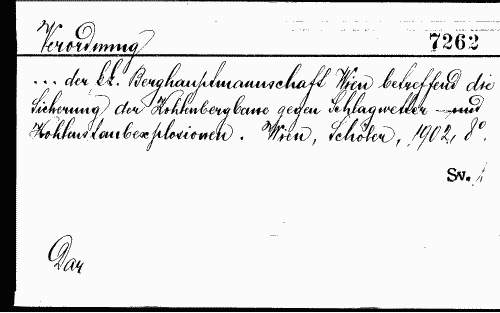 Verordnung
7262
... der kk. Berghauptmannschaft Wien betreffend die
Sicherung der Kohlenbergbaue gegen Schlagwetter und
Kohlenstaubexplosionen. Wien, Schöler, 1902, 8°.
Sv.
Dar